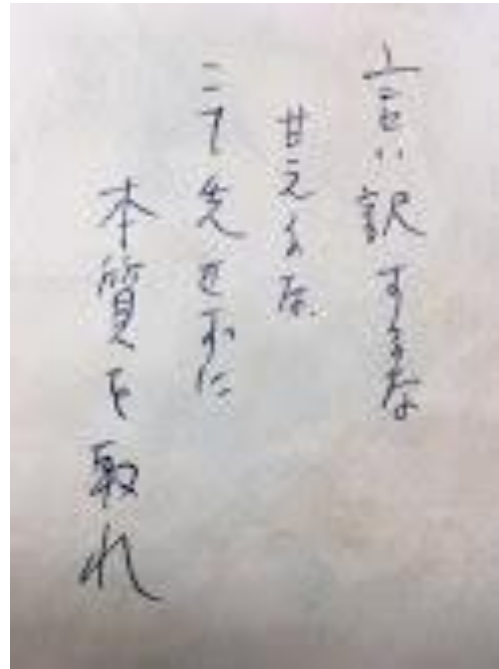 言い訳するな
甘えるな
こて先せずに
本質を取れ